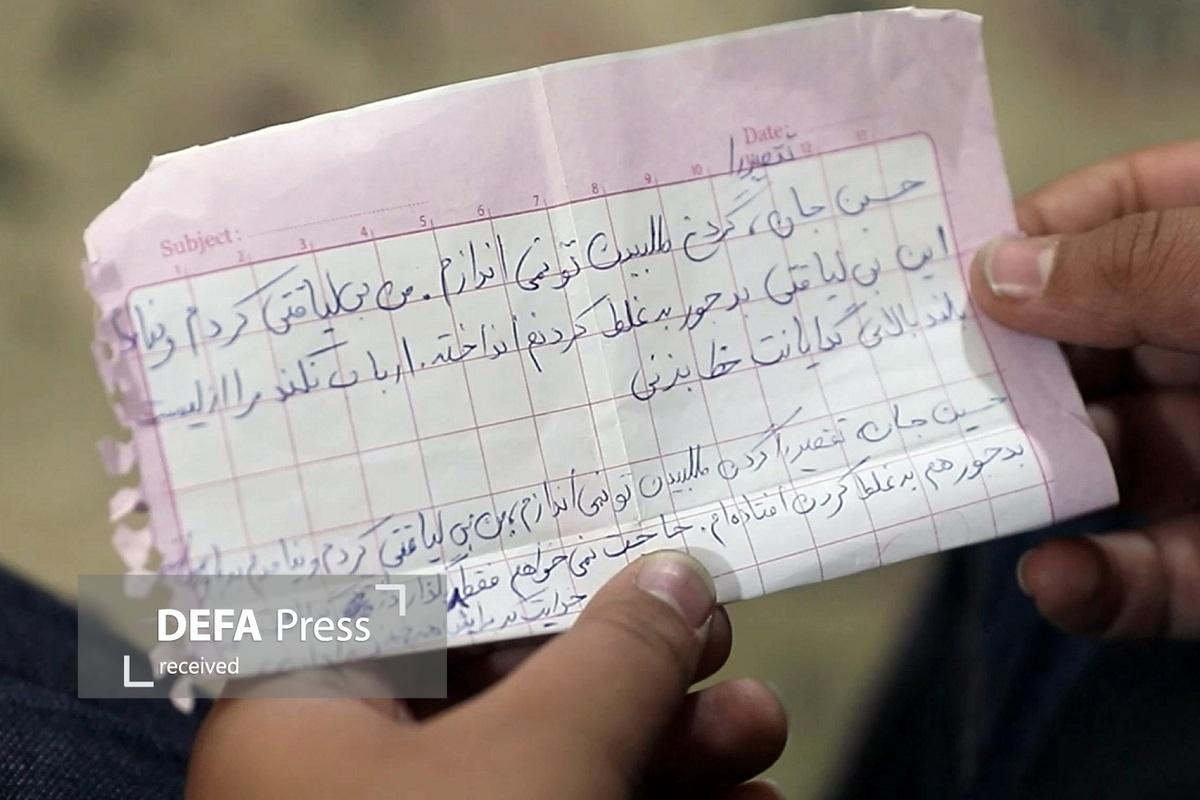 Date:
Subject:
1 2 3 4 5 6 7 8 9 10 12 13
تقصیر را
حسین جان، گردن طلبیدن تو نمی اندازم. من بی لیاقتی کردم و
این بی لیاقتی بدجور به غلط کردنم انداخته. ارباب نکند مرا از لیست
بلند بالای گدایانت خط بزنی
حسین جان تقصیر را گردن طلبیدن تو نمی اندازم، من بی لیاقتی کردم و
بدجور هم به غلط کردن افتاده ام. حاجت نمی خواهم فقط بگذار
DEFA Press
received